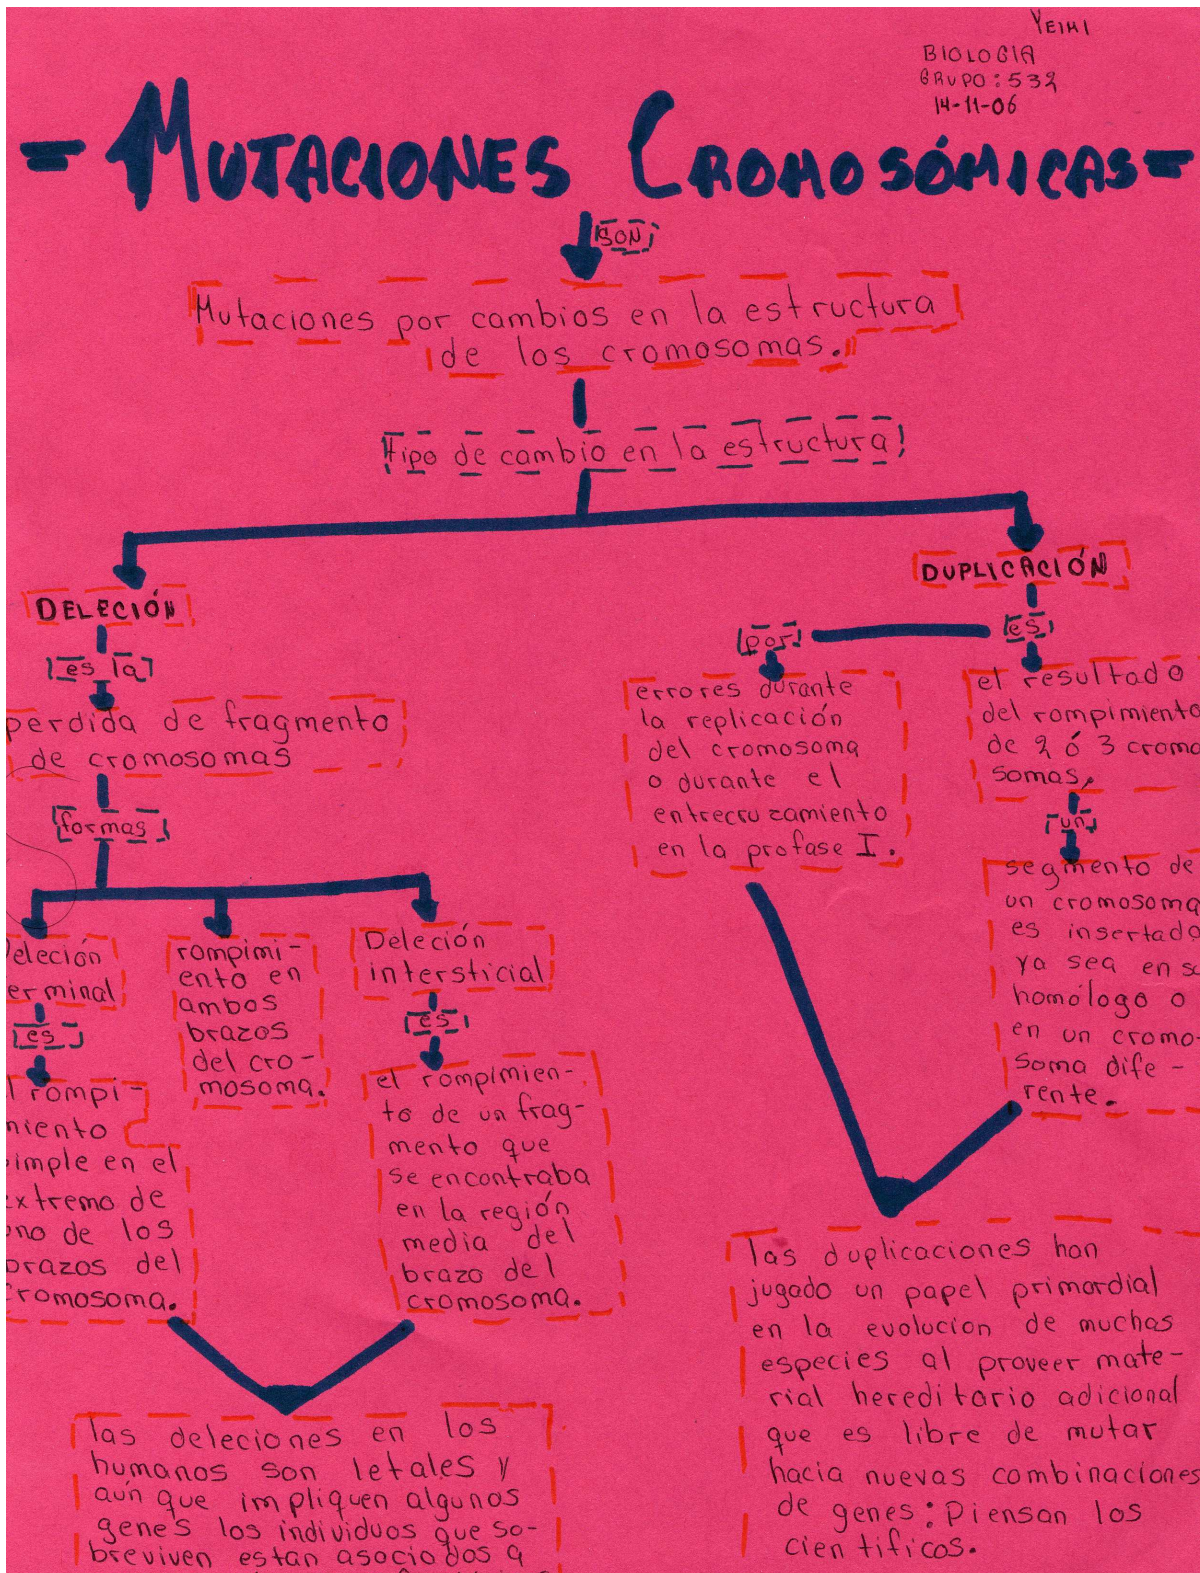 YEIMI
BIOLOGIA
GRUPO: 532
14-11-06
- MUTACIONES CROMOSÓMICAS =
SON
Mutaciones por cambios en la estructura
de los cromosomas.
tipo de cambio en la estructura
DELECIÓN
es la
perdida de fragmento
de cromosomas
formas
eleción
erminal
es
l rompi-
miento
simple en el
extremo de
uno de los
brazos del
cromosoma.
rompimi-
ento en
ambos
brazos
del cro-
mosoma.
Deleción
intersticial
es
el rompimien-
to de un frag-
mento que
se encontraba
en la región
media del
brazo del
cromosoma.
las deleciones en los
humanos son letales y
aún que impliquen algunos
genes los individuos que so-
breviven estan asociados a
DUPLICACIÓN
por
errores durante
la replicación
del cromosoma
o durante el
entrecruzamiento
en la profase I.
es
el resultado
del rompimiento
de 2 ó 3 cromo
somas,
un
segmento de
un cromosoma
es insertado
ya sea en su
homólogo o
en un cromo-
soma dife-
rente.
las duplicaciones han
jugado un papel primordial
en la evolucion de muchas
especies al proveer mate-
rial hereditario adicional
que es libre de mutar
hacia nuevas combinaciones
de genes: Piensan los
cientificos.